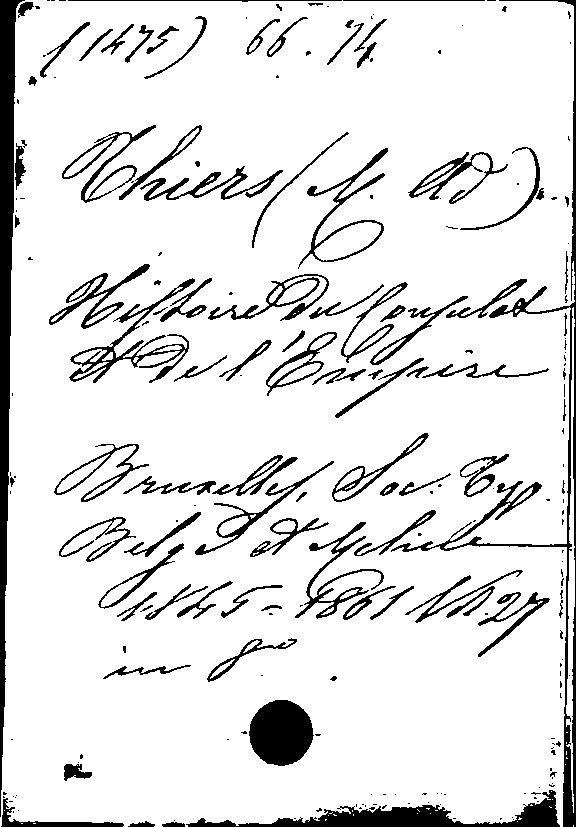 (1475) 66.74
Thiers (M. Ad)
Histoire du Consulat
et de l'Empire
Bruxelles, Soc. Typ.
Belge et Meline
1845-1861 Vol. 27
in 8º